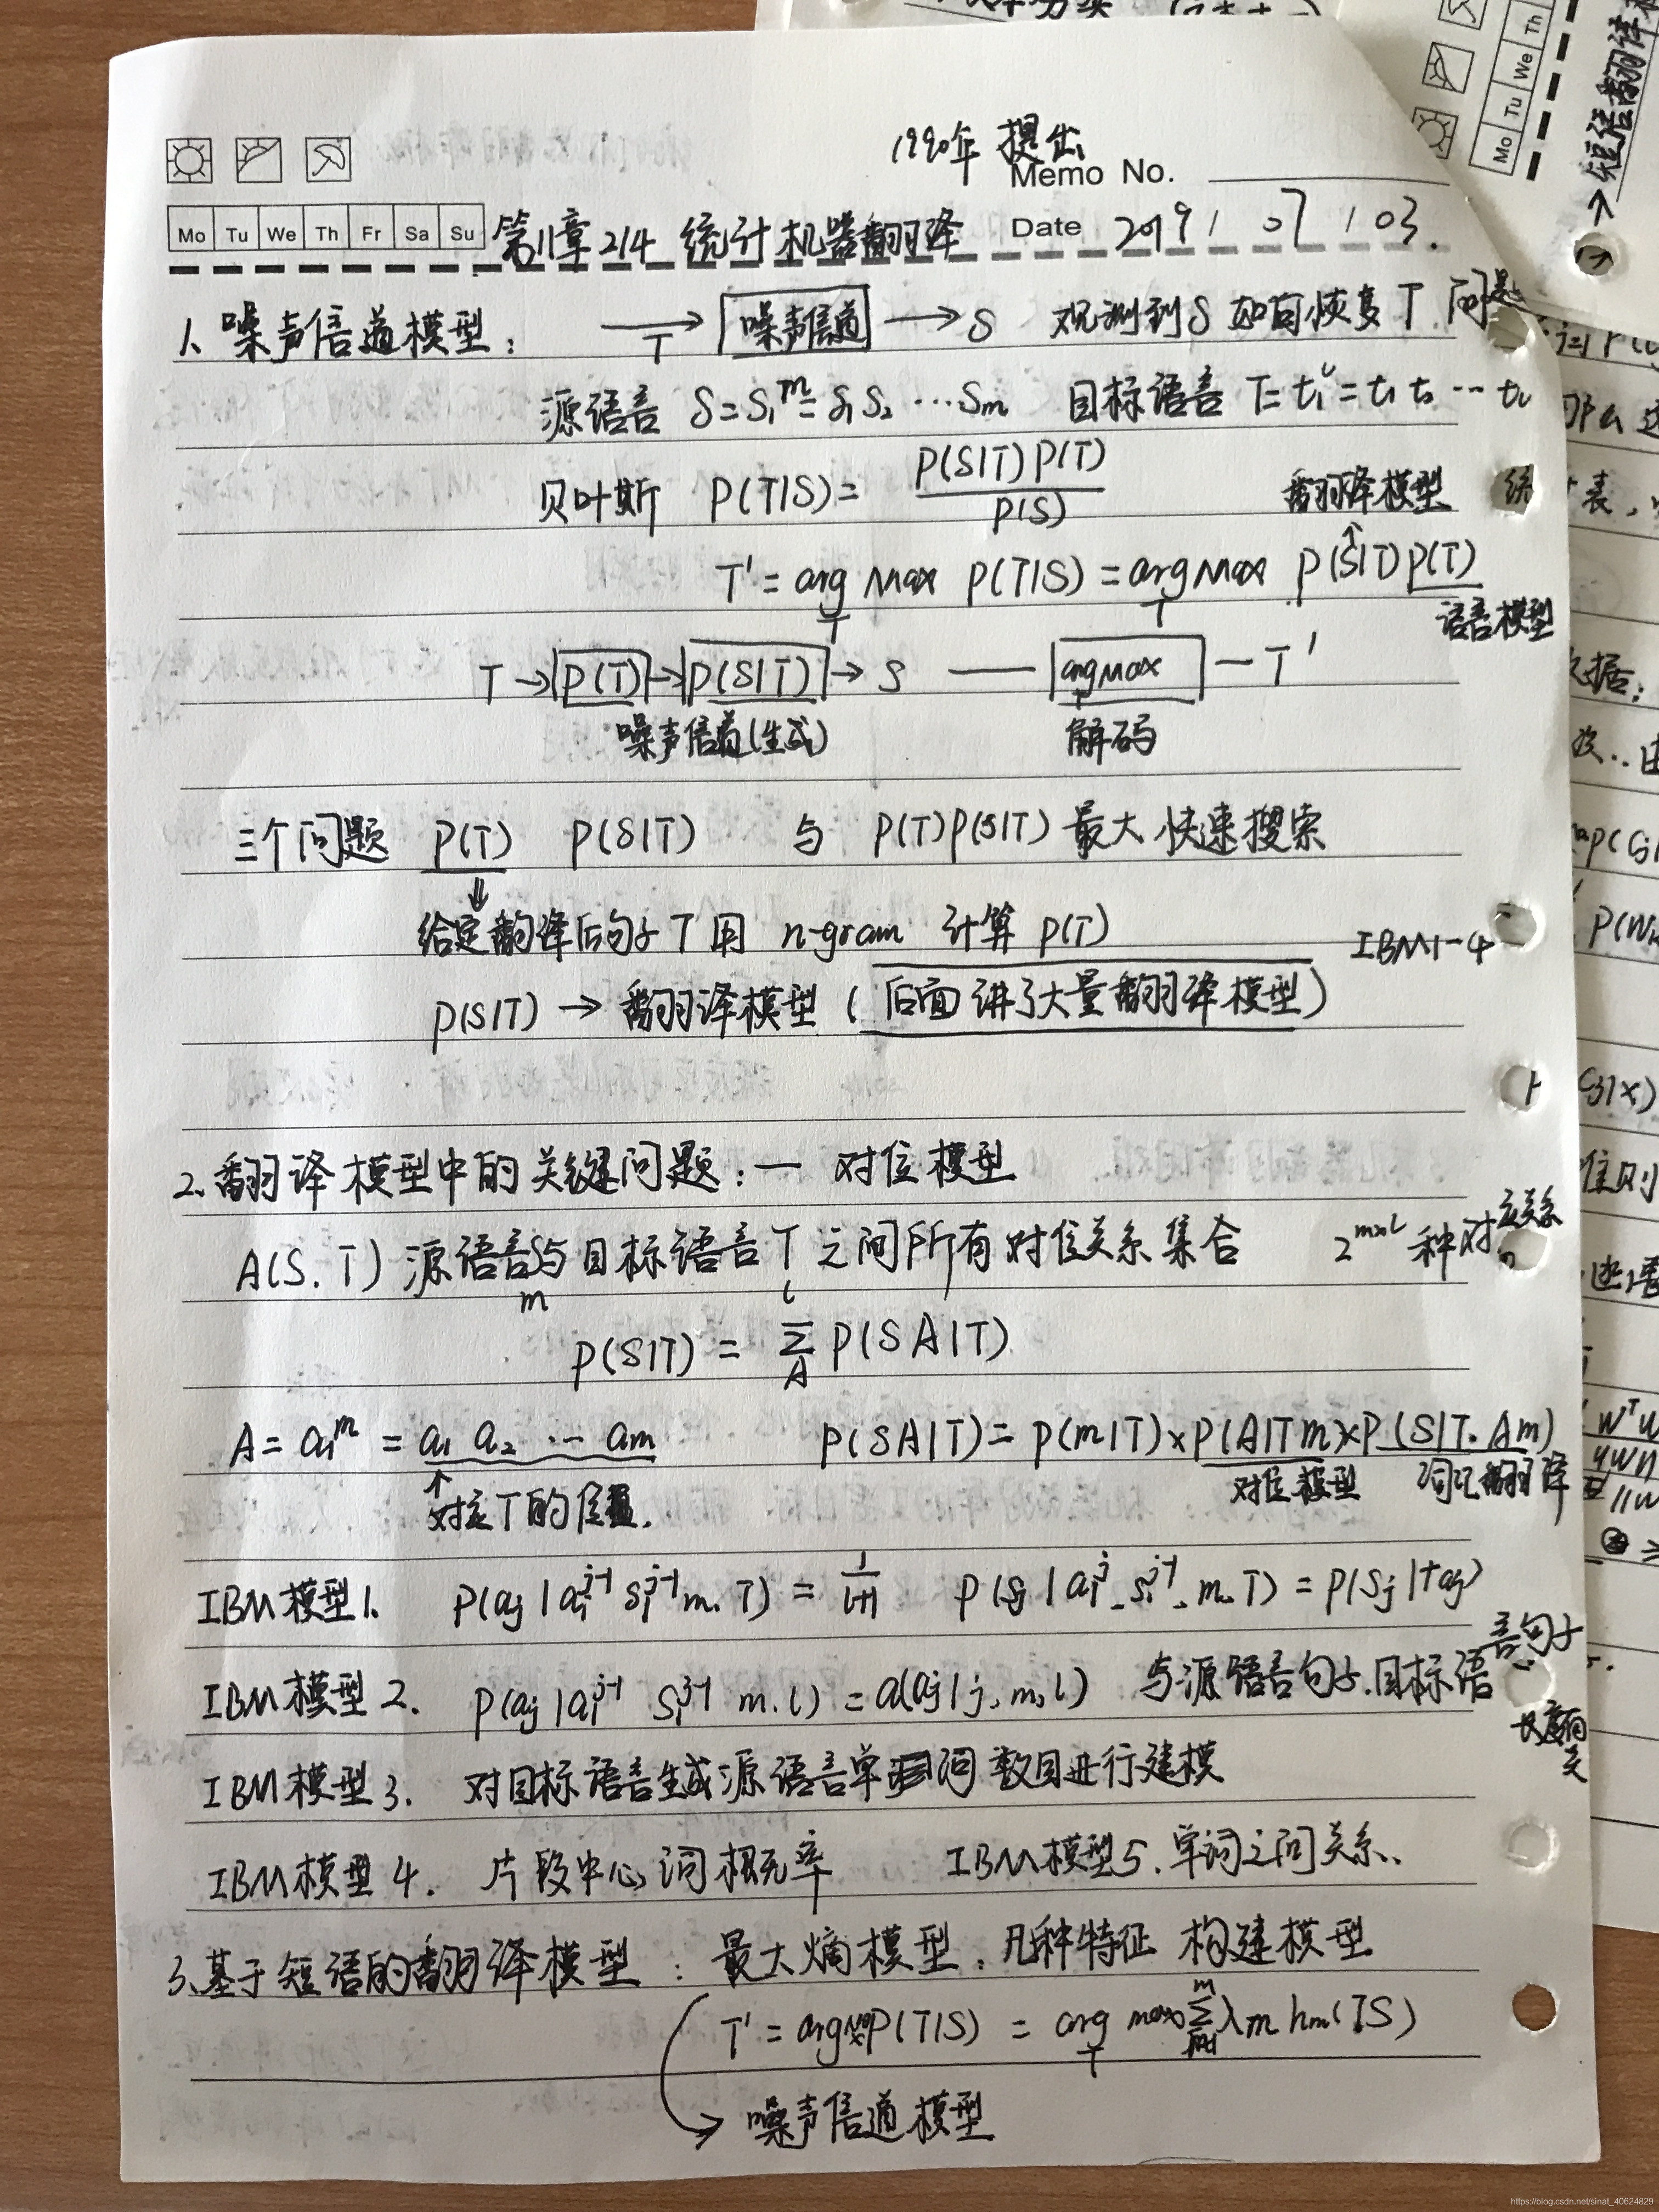 1990年 提出
Memo No.
Mo Tu We Th Fr Sa Su
第11章 2/4 统计机器翻译
Date 2019 / 07 / 03.
1、噪声信道模型: T → 噪声信道 → S 观测到S 如何恢复T 问题
源语言 S=S₁ᵐ=S₁S₂…Sm 目标语言 T=t₁ˡ=t₁t₂…tl
贝叶斯 P(T|S)= P(S|T)P(T) / P(S)
翻译模型
↑
T'=arg max_T P(T|S)=argmax_T P(S|T)P(T)
语言模型
T→P(T)→P(S|T)→S — argmax_T — T'
噪声信道(生成) 解码
三个问题 P(T) P(S|T) 与 P(T)P(S|T)最大 快速搜索
⇓
给定翻译后句子T用 n-gram 计算 P(T)
IBM1-4
P(S|T) → 翻译模型 (后面讲了大量翻译模型)
2、翻译模型中的关键问题:一 对位模型
A(S.T) 源语言S与目标语言T之间所有对位关系集合 2^(m×l) 种对应关系
m l
P(S|T) = Σ_A P(SA|T)
A=a₁ᵐ=a₁ a₂ … am P(SA|T)=P(m|T)×P(A|Tm)×P(S|T.Am)
↑
对应T的位置. 对位模型 词汇翻译
IBM模型1. P(aj|a₁^(j-1) S₁^(j-1) m.T) = 1/(l+1) P(Sj|a₁^j.S₁^(j-1).m.T)=P(Sj|taj)
IBM模型2. P(aj|a₁^(j-1) S₁^(j-1) m.l)=a(aj|j,m,l) 与源语言句子.目标语言句子长度有关
IBM模型3. 对目标语言生成源语言单词数目进行建模
IBM模型4. 片段中心词概率 IBM模型5.单词之间关系.
3、基于短语的翻译模型: 最大熵模型.几种特征 构建模型
T'=argmax P(T|S) = arg max_T Σ_(m=1)^m λm hm(TS)
噪声信道模型
短语翻译
https://blog.csdn.net/sinat_40624829